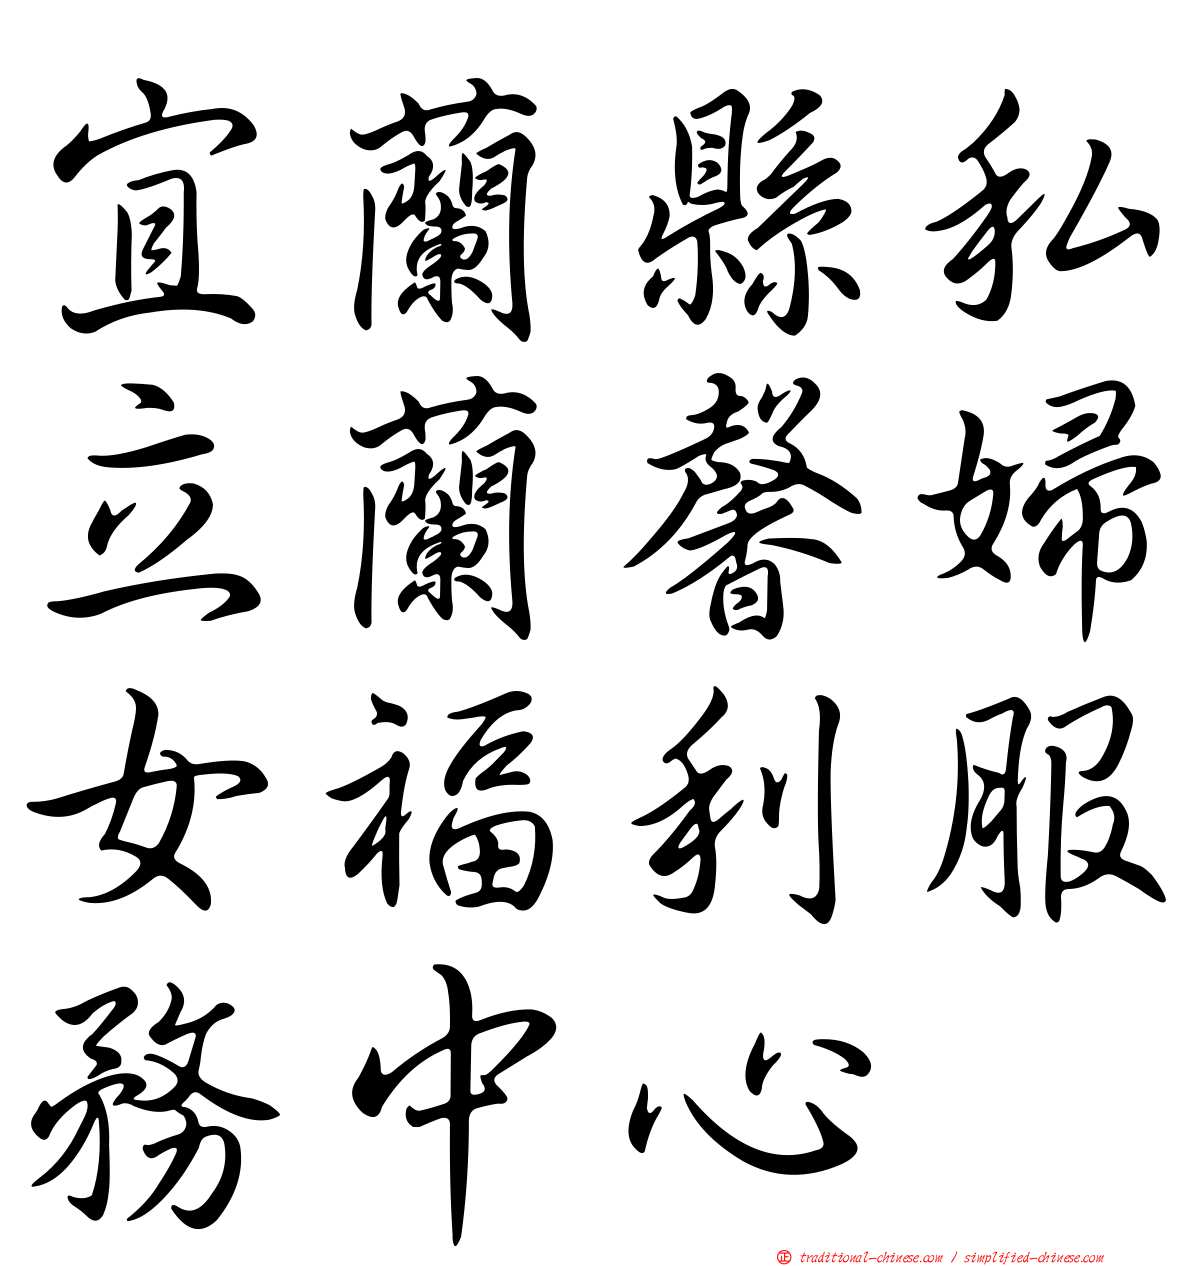 宜蘭縣私
立蘭馨婦
女福利服
務中心
正 traditional-chinese.com / simplified-chinese.com